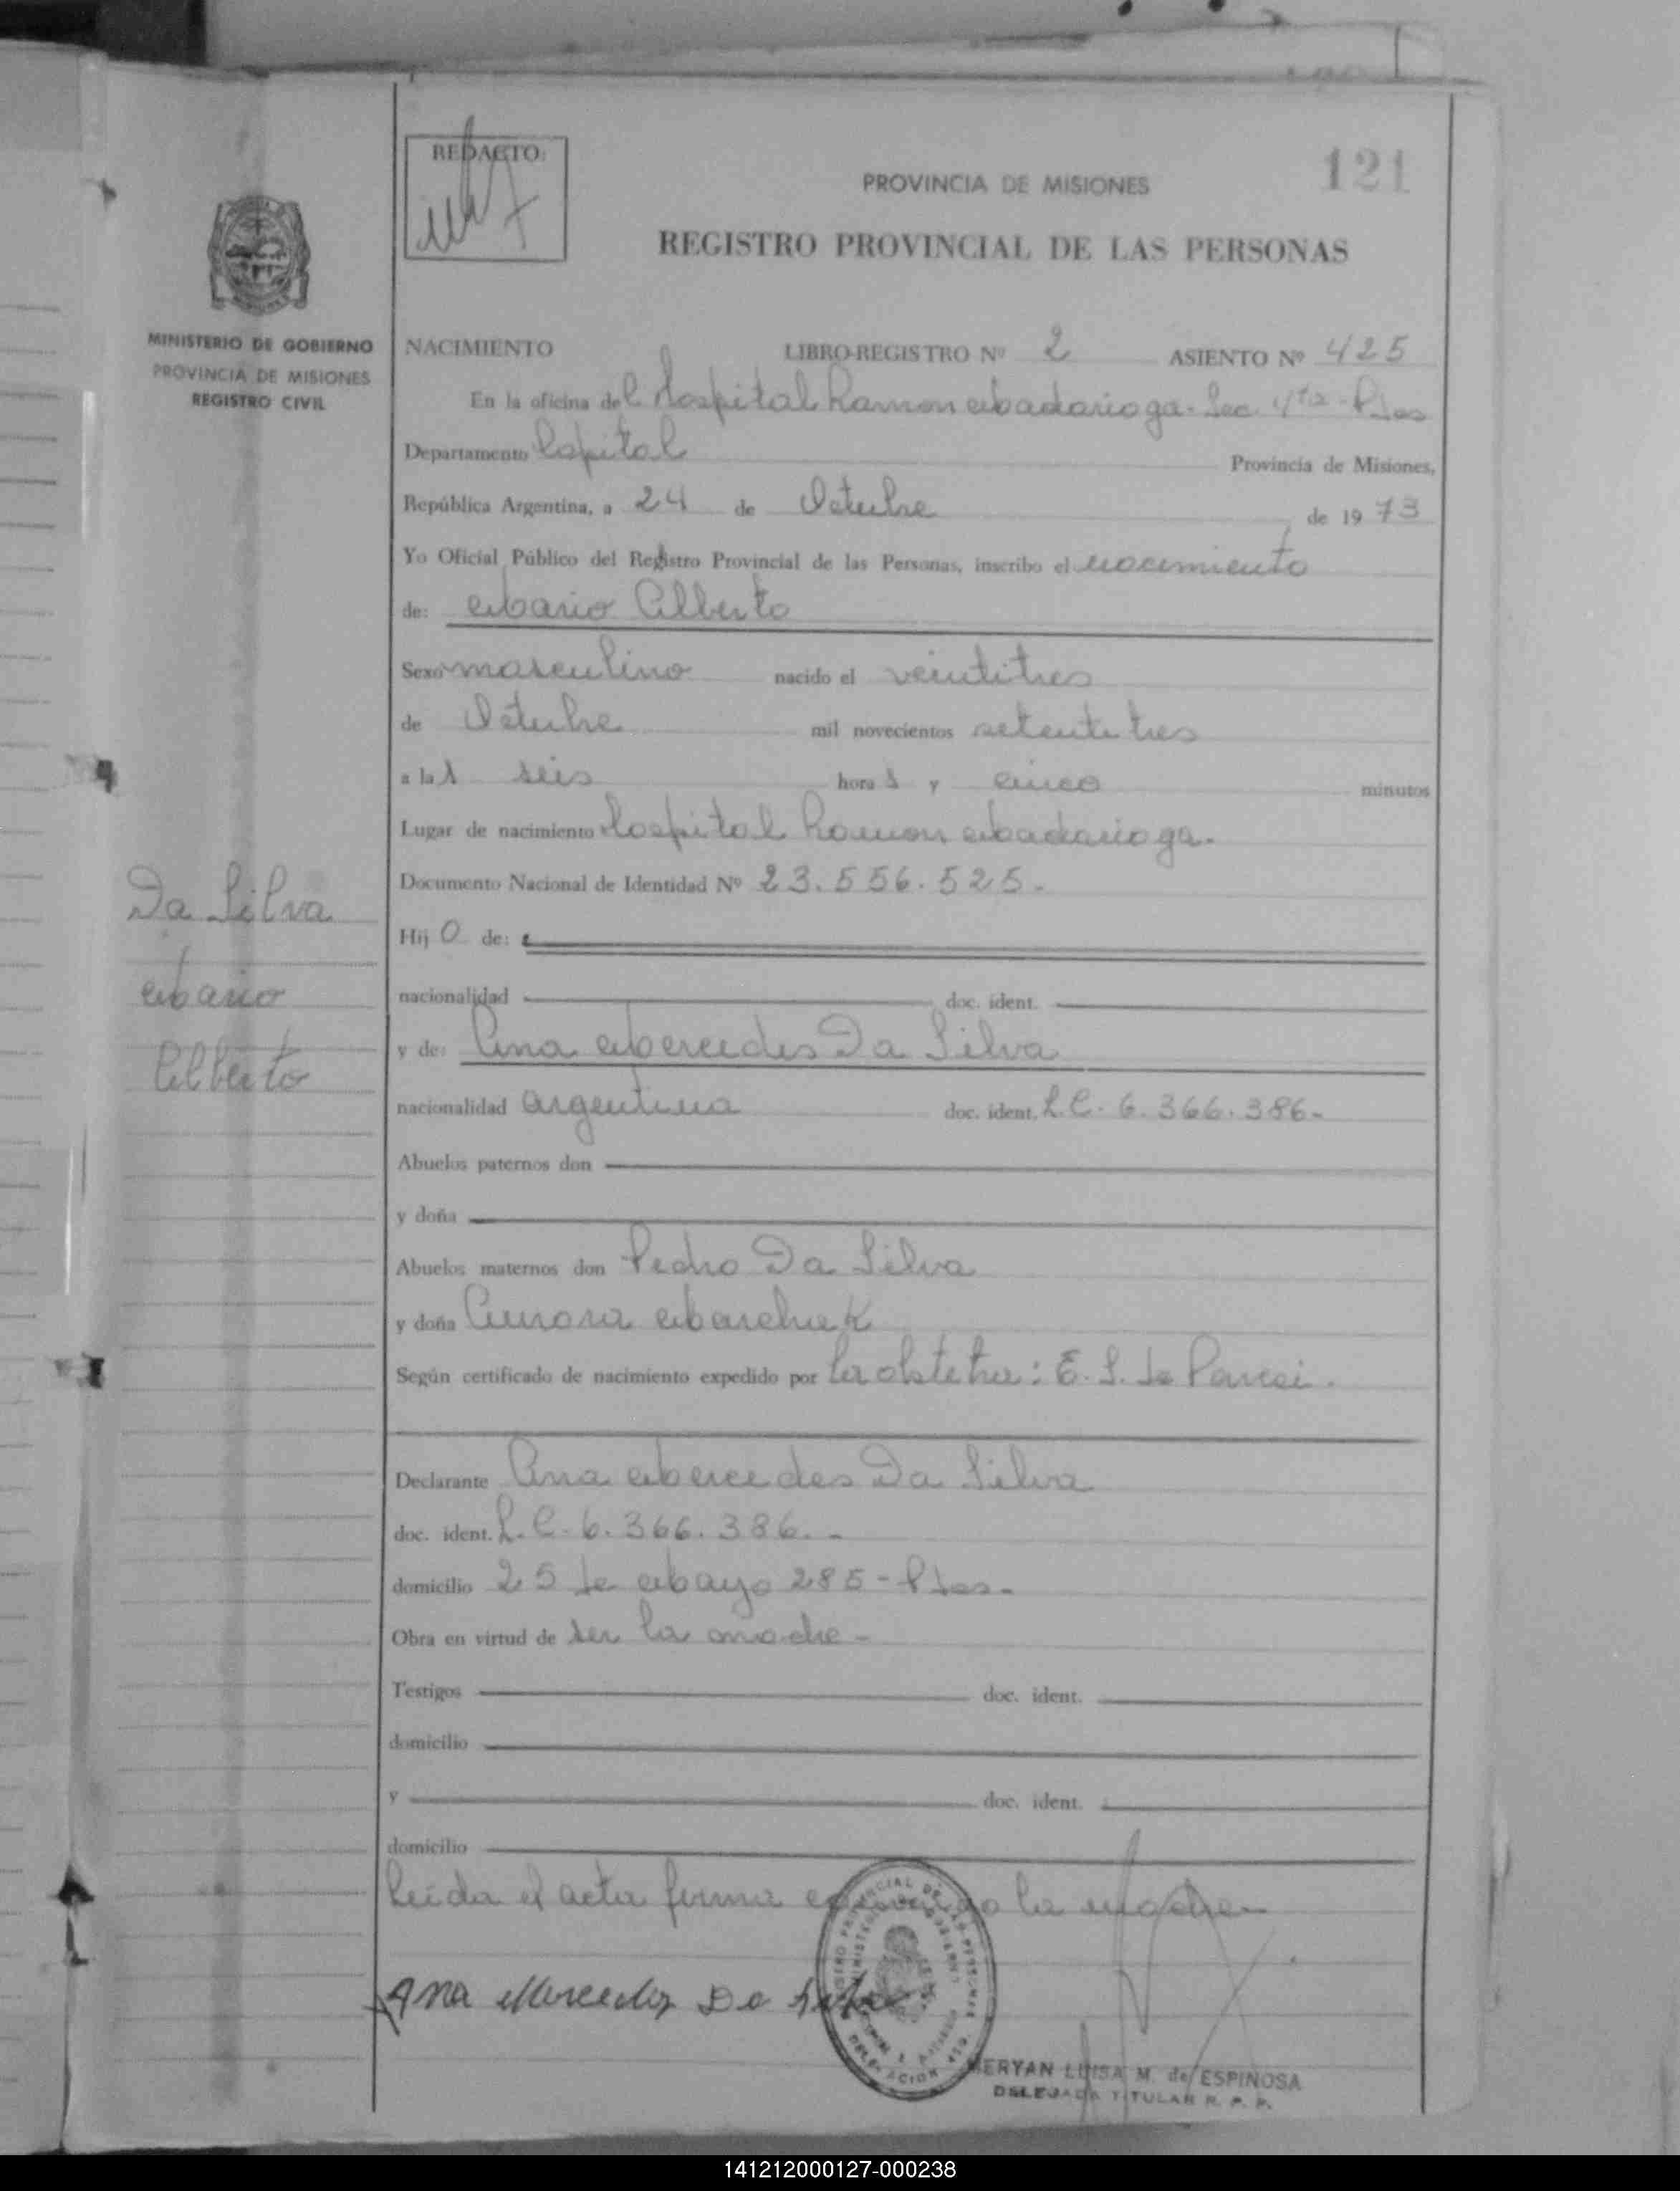 121
REDACTO:
PROVINCIA DE MISIONES
REGISTRO PROVINCIAL DE LAS PERSONAS
MINISTERIO DE GOBIERNO
PROVINCIA DE MISIONES
REGISTRO CIVIL
NACIMIENTO LIBRO-REGISTRO Nº 2 ASIENTO Nº 425
En la oficina del Hospital Ramon Madariaga - Sec. 4ta - Pdas
Departamento Capital Provincia de Misiones,
República Argentina, a 24 de Octubre de 1973
Yo Oficial Público del Registro Provincial de las Personas, inscribo el nacimiento
de: Mario Alberto
Sexo masculino nacido el veintitres
de Octubre mil novecientos setentitres
a las seis horas y cinco minutos
Lugar de nacimiento Hospital Ramon Madariaga.
Documento Nacional de Identidad Nº 23.556.525.-
Da Silva
Mario
Alberto
Hijo de:
nacionalidad doc. ident.
y de: Ana Mercedes Da Silva
nacionalidad argentina doc. ident. L.C. 6.366.386-
Abuelos paternos don
y doña
Abuelos maternos don Pedro Da Silva
y doña Aurora Marchuk
Según certificado de nacimiento expedido por la obstetra: E. S. de
Declarante Ana Mercedes Da Silva
doc. ident. L.C. 6.366.386.-
domicilio 25 de Mayo 285 - Pdas.-
Obra en virtud de ser la madre-
Testigos doc. ident.
domicilio
y doc. ident.
domicilio
Leida el acta firma conmigo la madre-
Ana Mercedes Da Silva
MERYAN LUISA M. de ESPINOSA
DELEGADA TITULAR R. P. P.
141212000127-000238